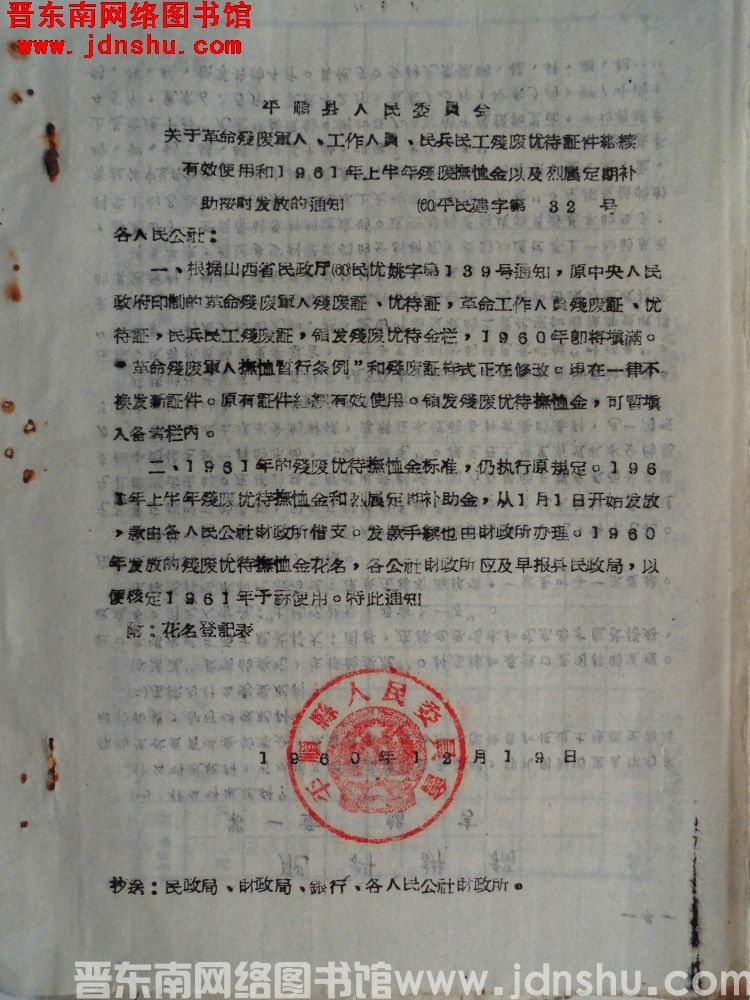 晋东南网络图书馆
www.jdnshu.com
平顺县人民委員会
关于革命殘废軍人、工作人員、民兵民工殘废优待証件継続
有效使用和1961年上半年殘废撫恤金以及烈属定期补
助按时发放的通知 (60)平民建字第 32 号
各人民公社:
一、根据山西省民政厅(60)民优姚字第139号通知,原中央人民
政府印制的革命殘废軍人殘废証、优待証,革命工作人員殘废証、优
待証,民兵民工殘废証,領发殘废优待金栏,1960年即将填滿。
"革命殘废軍人撫恤暫行条例"和殘废証样式正在修改。現在一律不
換发新証件。原有証件継続有效使用。領发殘废优待撫恤金,可暫填
入备考栏内。
二、1961年的殘废优待撫恤金标准,仍执行原規定。196
1年上半年殘废优待撫恤金和烈属定期补助金,从1月1日开始发放
,款由各人民公社財政所借支。发款手続也由財政所办理。1960
年发放的殘废优待撫恤金花名,各公社財政所应及早报县民政局,以
便核定1961年予祘使用。特此通知
附:花名登記表
平順縣人民委員會
1960年12月19日
抄送:民政局、財政局、銀行、各人民公社財政所。
晋东南网络图书馆www.jdnshu.com